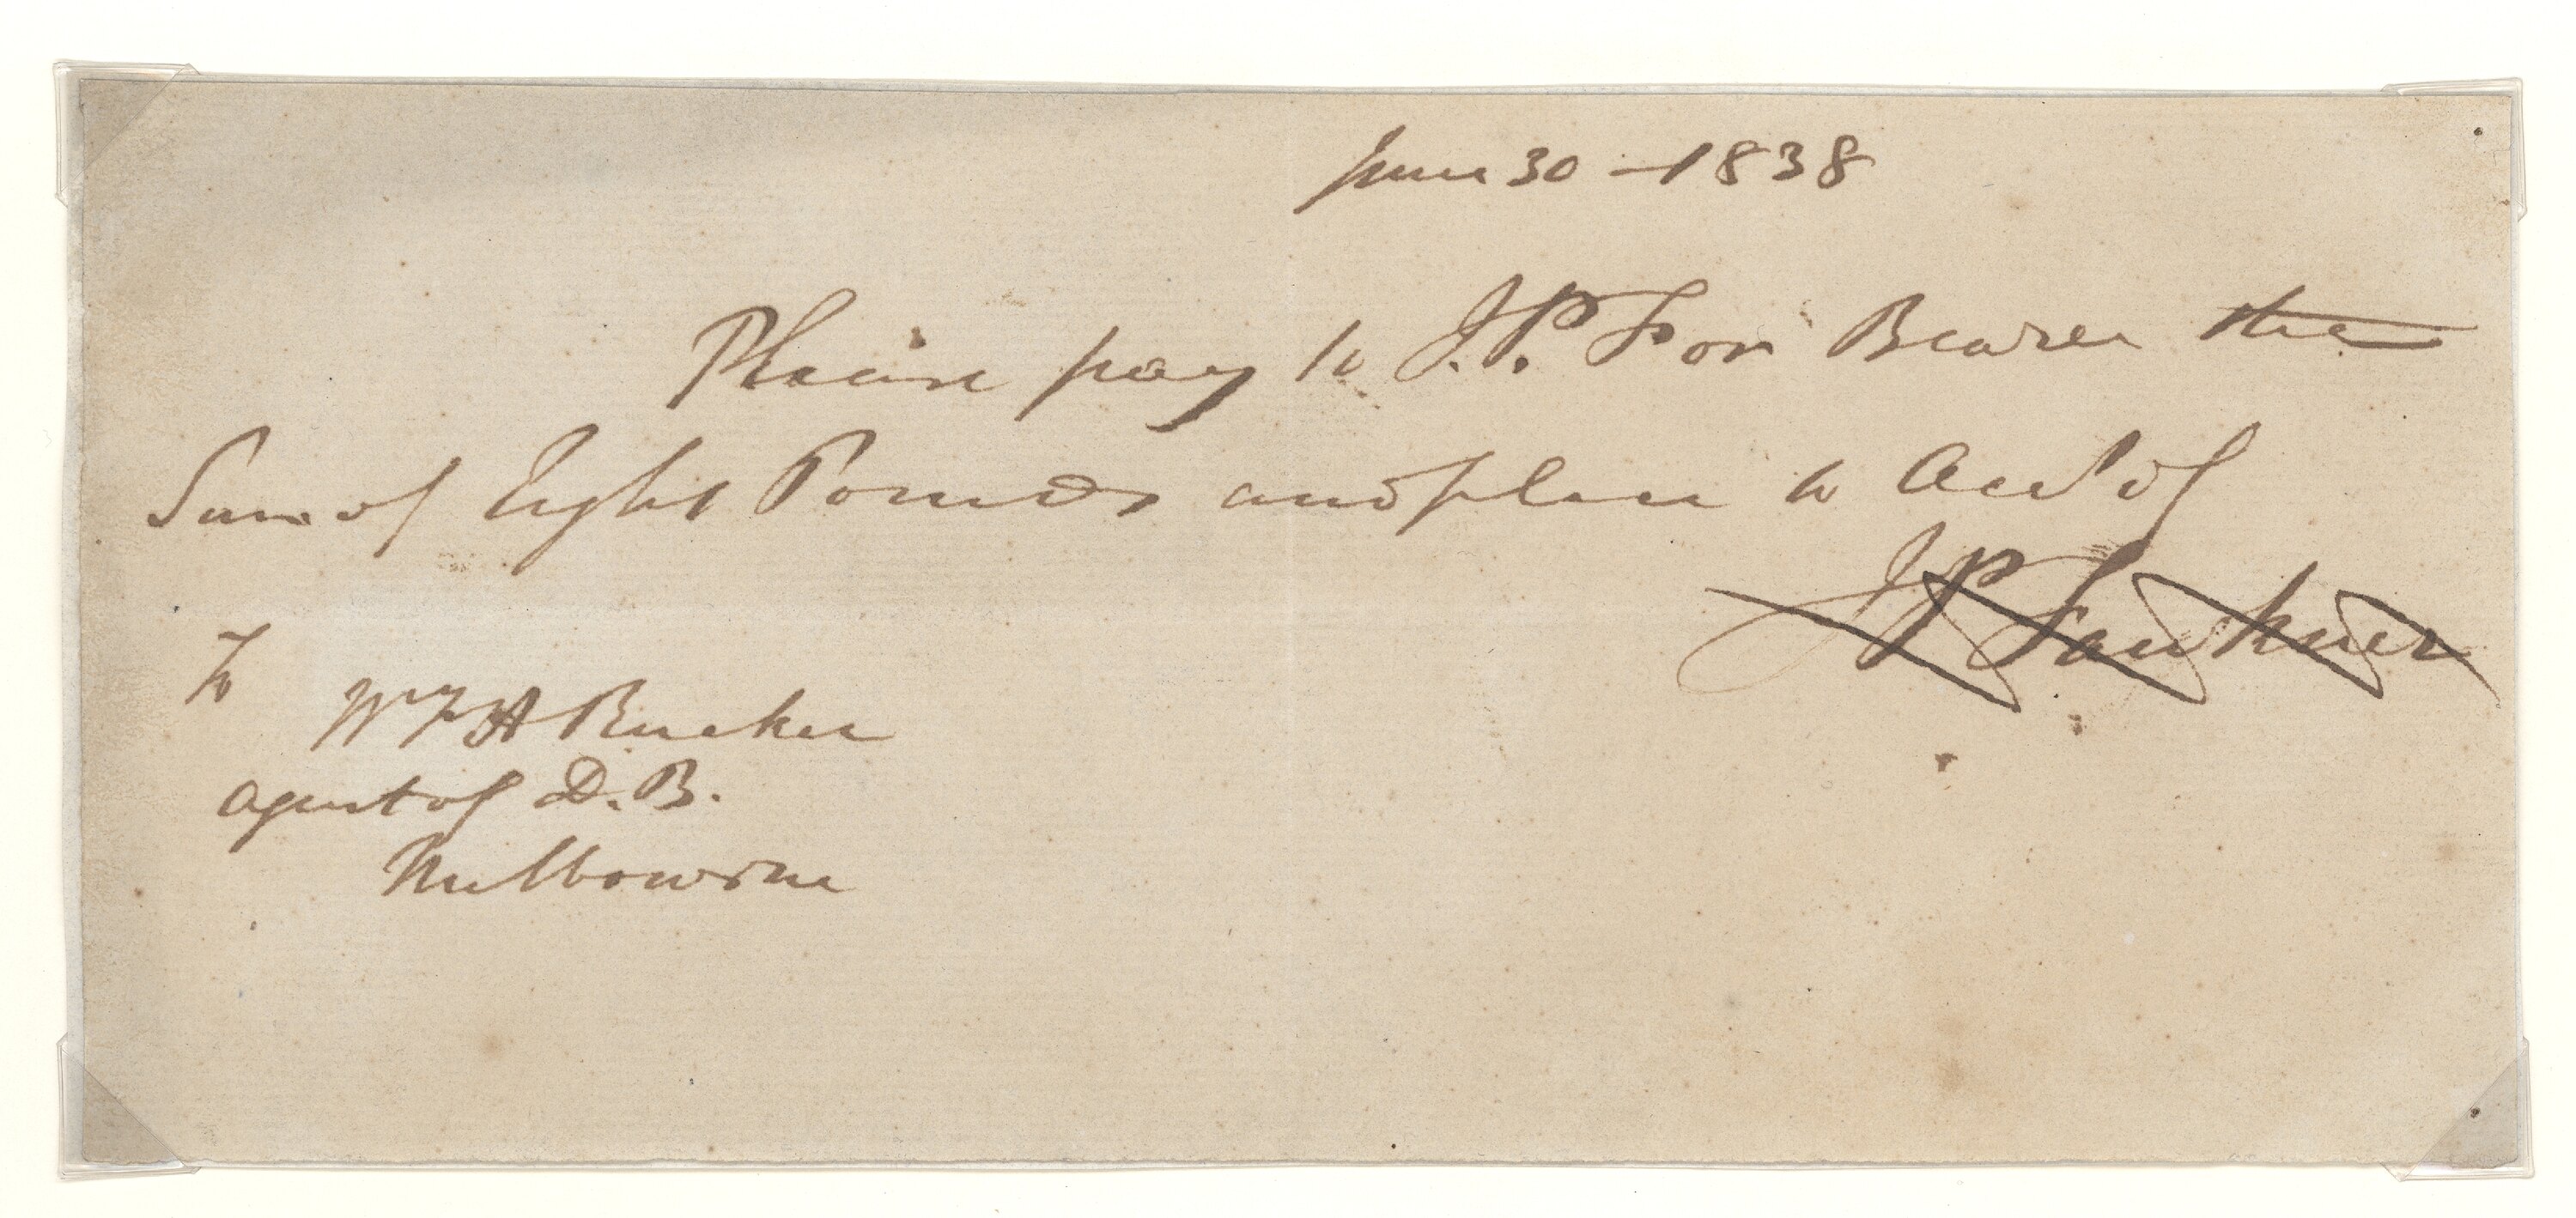 June 30 – 1838
Please pay to J.P.F or Bearer the
Sum of Eight Pounds and place to Acct of
J P Fawkner
To
W F A Rucker
agent of D.B.
Melbourne